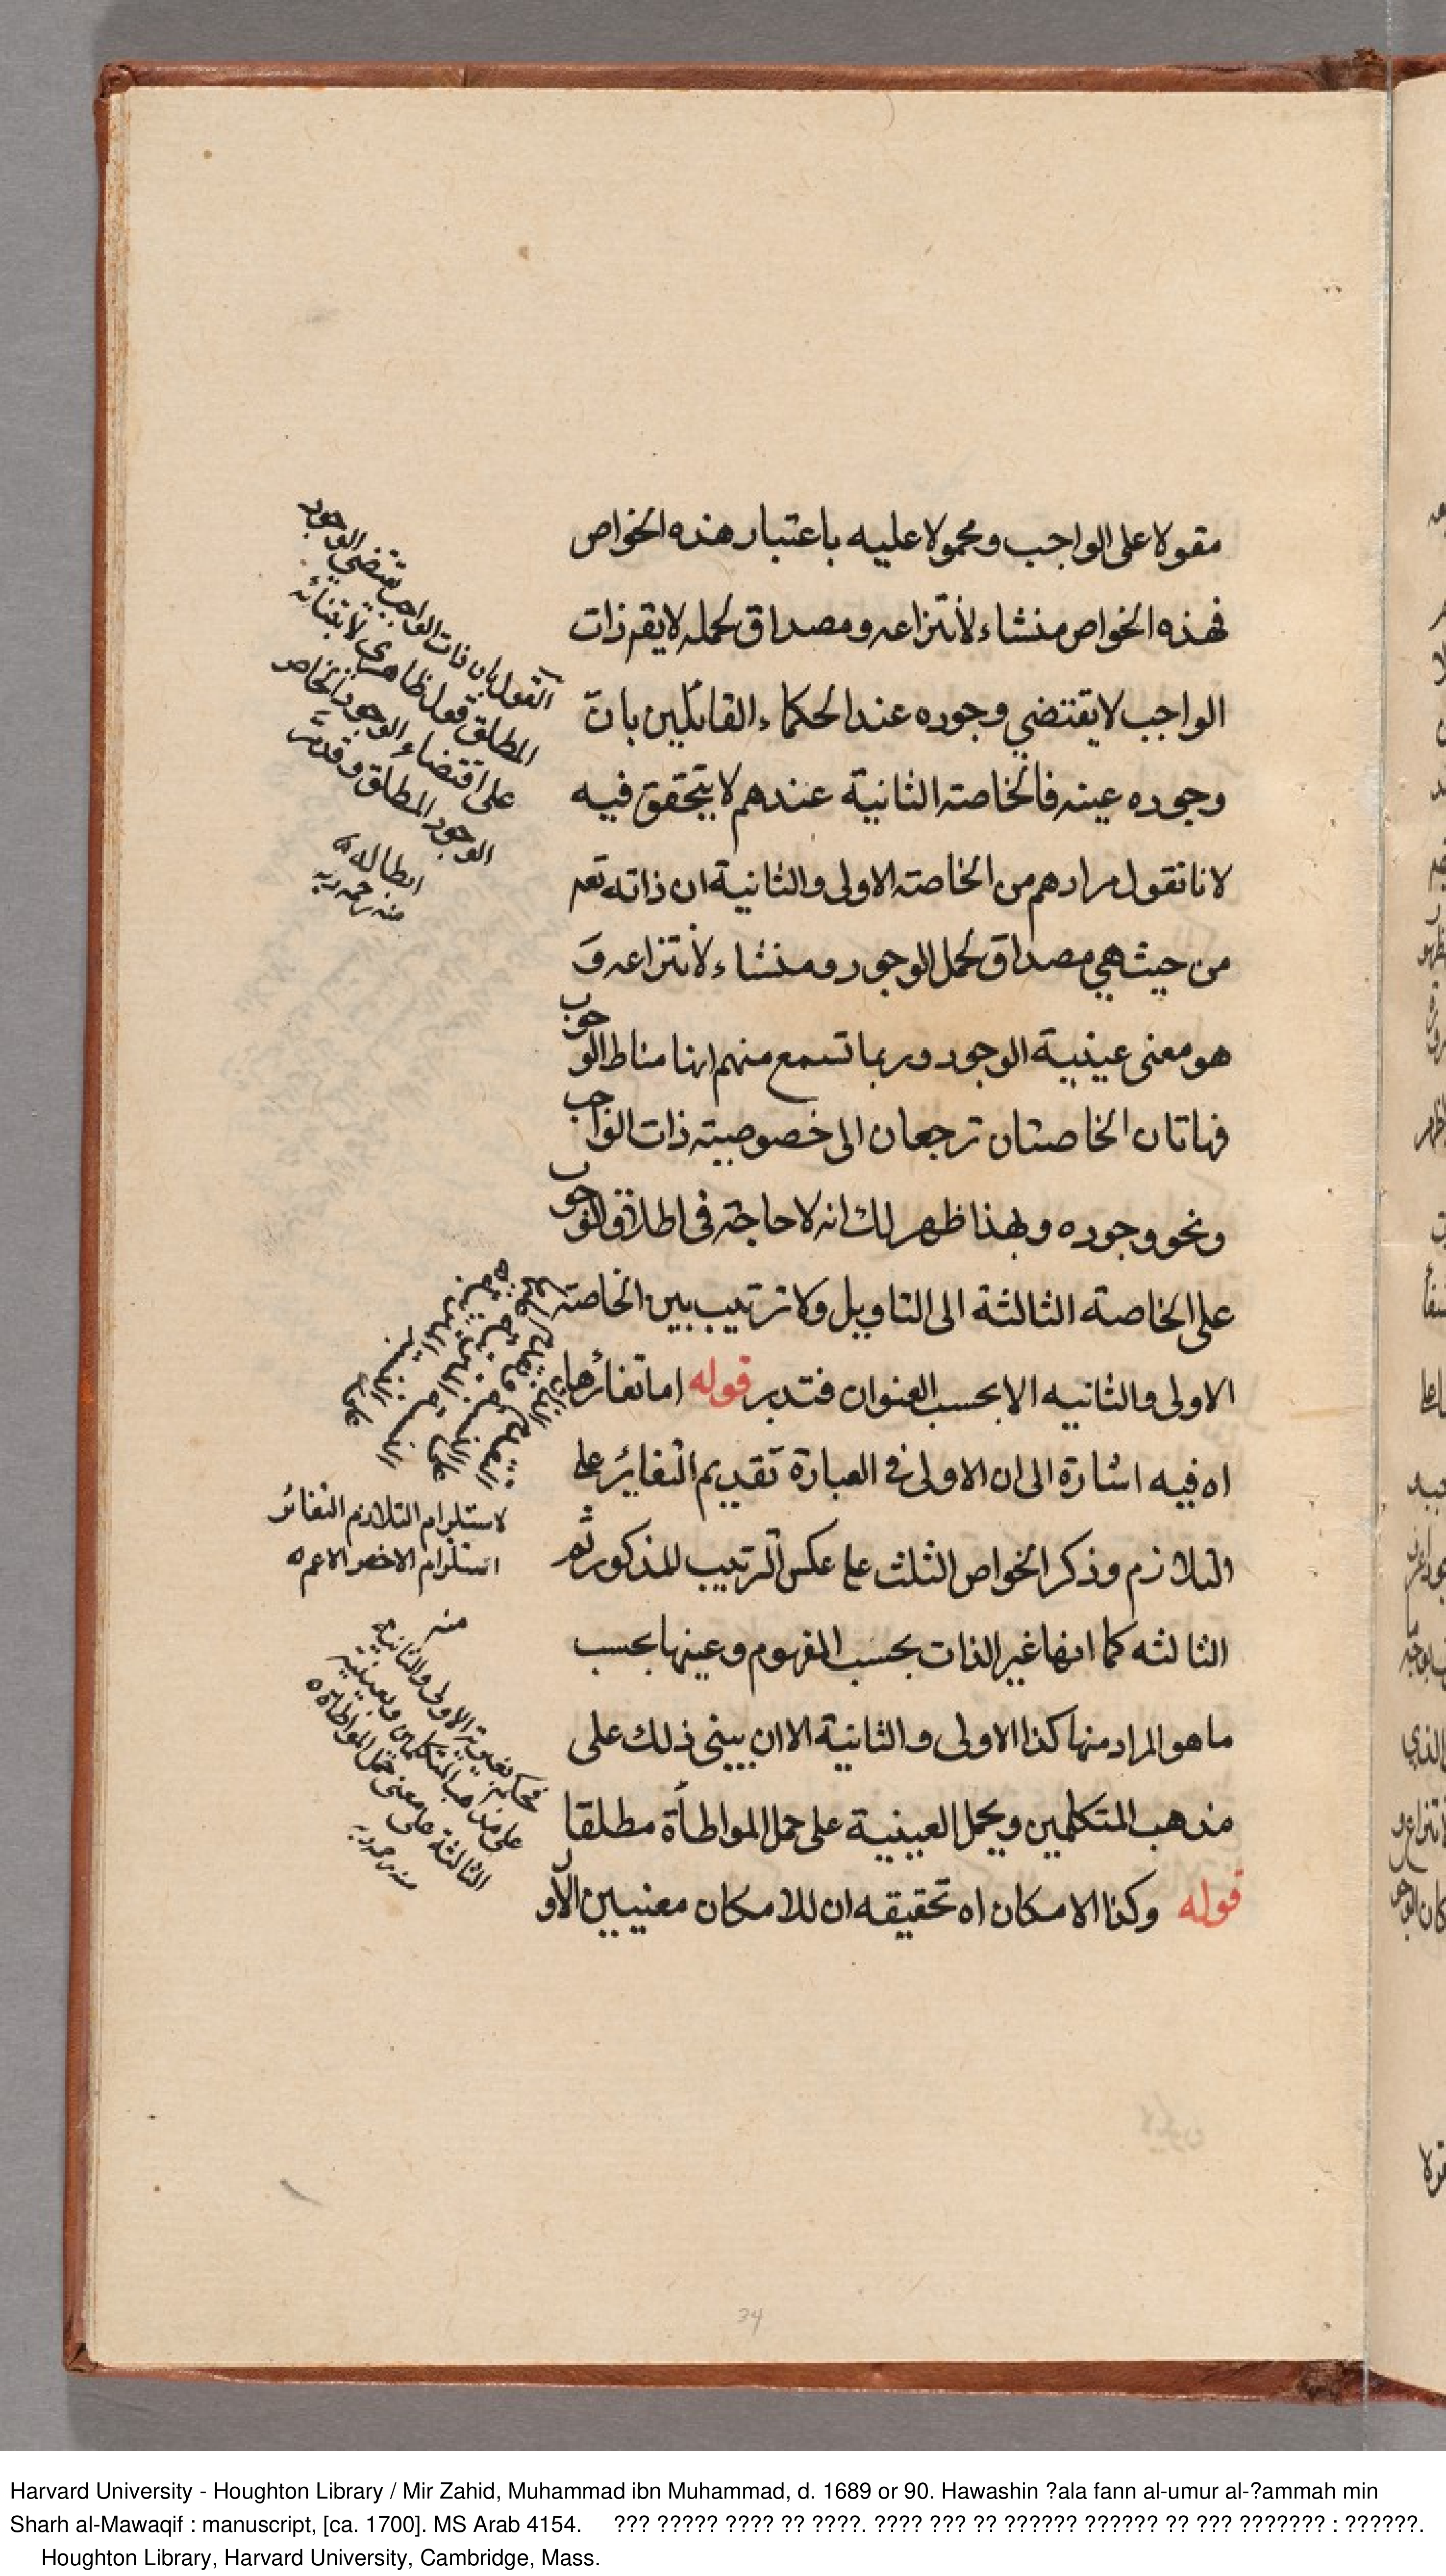 مقولا على الواجب ومحمولا عليه باعتبار هذه الخواص
فهذه الخواص منشاء لانتزاعه ومصداق لحمله لايقم ذات
الواجب لايقتضي وجوده عند الحكماء القائلين بان
وجوده عينه فالخاصته الثانية عندهم لا يتحقق فيه
لانا نقول مرادهم من الخاصته الاولى والثانية ان ذاته تعه
من حيث هي مصداق لحمل الوجود ومنشاء لانتزاعه و
هو معنى عينية الوجود وربما تسمع منهم انها مناط الوجوب
فهاتان الخاصتان ترجعان الى خصوصيته ذات الواجب
ونحو وجوده وبهذا ظهر لك انه لا حاجته فى اطلاق الوجوب
على الخاصته الثالثة الى التاويل ولا ترتيب بين الخاصته
الاولى والثانيه الا بحسب العنوان فتدبر قوله اما تغائرها
اه فيه اشارة الى ان الاولى فى العبارة تقديم التغاير على
التلازم وذكر الخواص الثلث على عكس الترتيب المذكور ثم
الثالثه كما انها غير الذات بحسب المفهوم وعينها بحسب
ما هو المراد منها كذا الاولى والثانية الا ان يبنى ذلك على
مذهب المتكلمين ويحمل العينية على حمل المواطأة مطلقا
قوله وكذا الامكان اه تحقيقه ان للامكان معنيين الاو
القول بان ذات الواجب يقتضى الوجود
المطلق قول ظاهرى لابتنائه
على اقتضاء الوجود الخاص
الوجود المطلق وقد مر
ابطاله
منه رحمه ربه
لاستلزام التلازم التغائر
استلزام الاخص الاعم
منه
على مذهب المتكلمين وبعينية
الثالثة على معنى حمل المواطاة
منه رحمه ربه
34
Harvard University - Houghton Library / Mir Zahid, Muhammad ibn Muhammad, d. 1689 or 90. Hawashin ?ala fann al-umur al-?ammah min
Sharh al-Mawaqif : manuscript, [ca. 1700]. MS Arab 4154. ??? ????? ???? ?? ????. ???? ??? ?? ?????? ?????? ?? ??? ??????? : ??????.
Houghton Library, Harvard University, Cambridge, Mass.